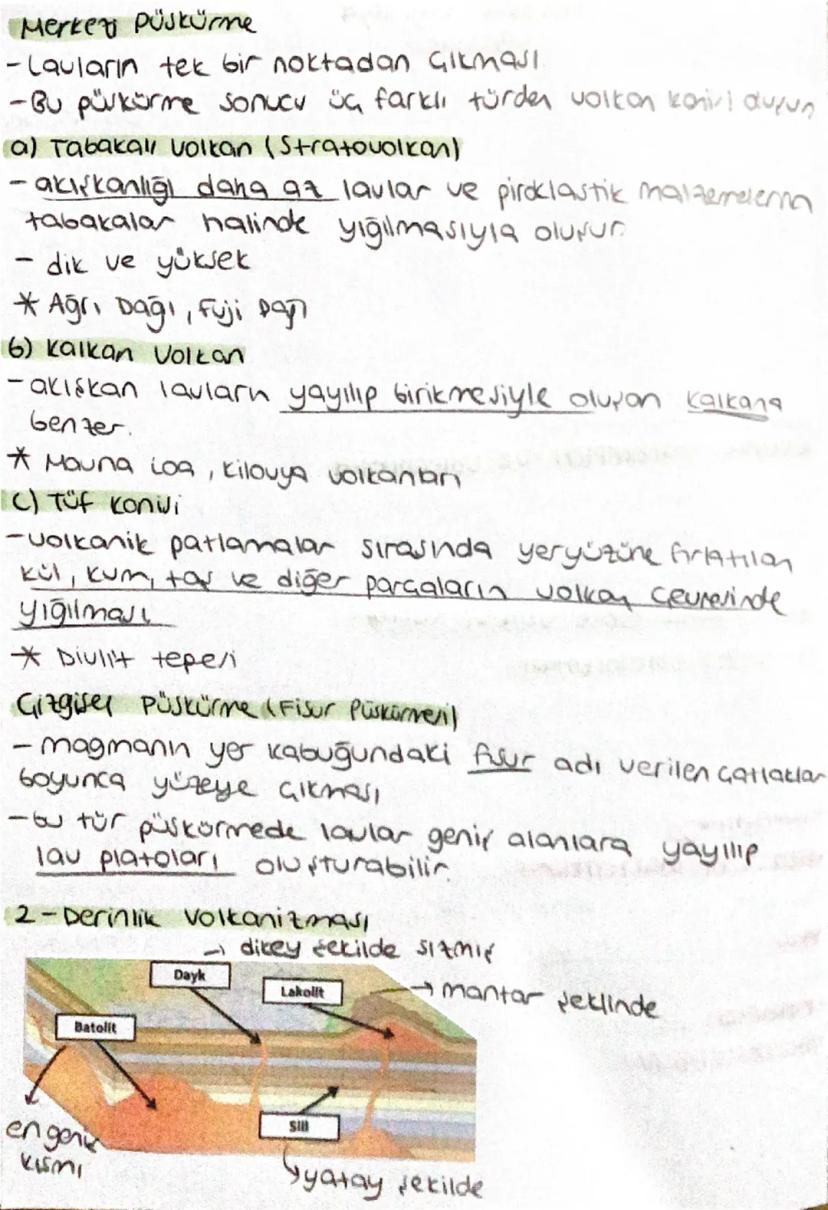 Merkezi Püskürme
- Lavların tek bir noktadan çıkması
- Bu püskürme sonucu üç farklı türden volkan konisi oluşur
a) Tabakalı Volkan (Stratovolkan)
- akışkanlığı daha az lavlar ve piroklastik malzemelerin
tabakalar halinde yığılmasıyla oluşur.
- dik ve yüksek
* Ağrı Dağı, Fuji Dağı
b) Kalkan Volkan
- akışkan lavların yayılıp birikmesiyle oluşan kalkana
benzer.
* Mauna Loa, Kilauya volkanları
c) Tüf Konisi
- volkanik patlamalar sırasında yeryüzüne fırlatılan
kül, kum, taş ve diğer parçaların volkan çevresinde
yığılması
* Divlit tepesi
Çizgisel Püskürme (Fisur Püskürmesi)
- magmanın yer kabuğundaki fisur adı verilen çatlaklar
boyunca yüzeye çıkması
- bu tür püskürmede lavlar geniş alanlara yayılıp
lav platoları oluşturabilir.
2- Derinlik Volkanizması
→ dikey şekilde sızmış
Dayk
Lakolit
→ mantar şeklinde
Batolit
Sill
en geniş
kısmı
yatay şekilde